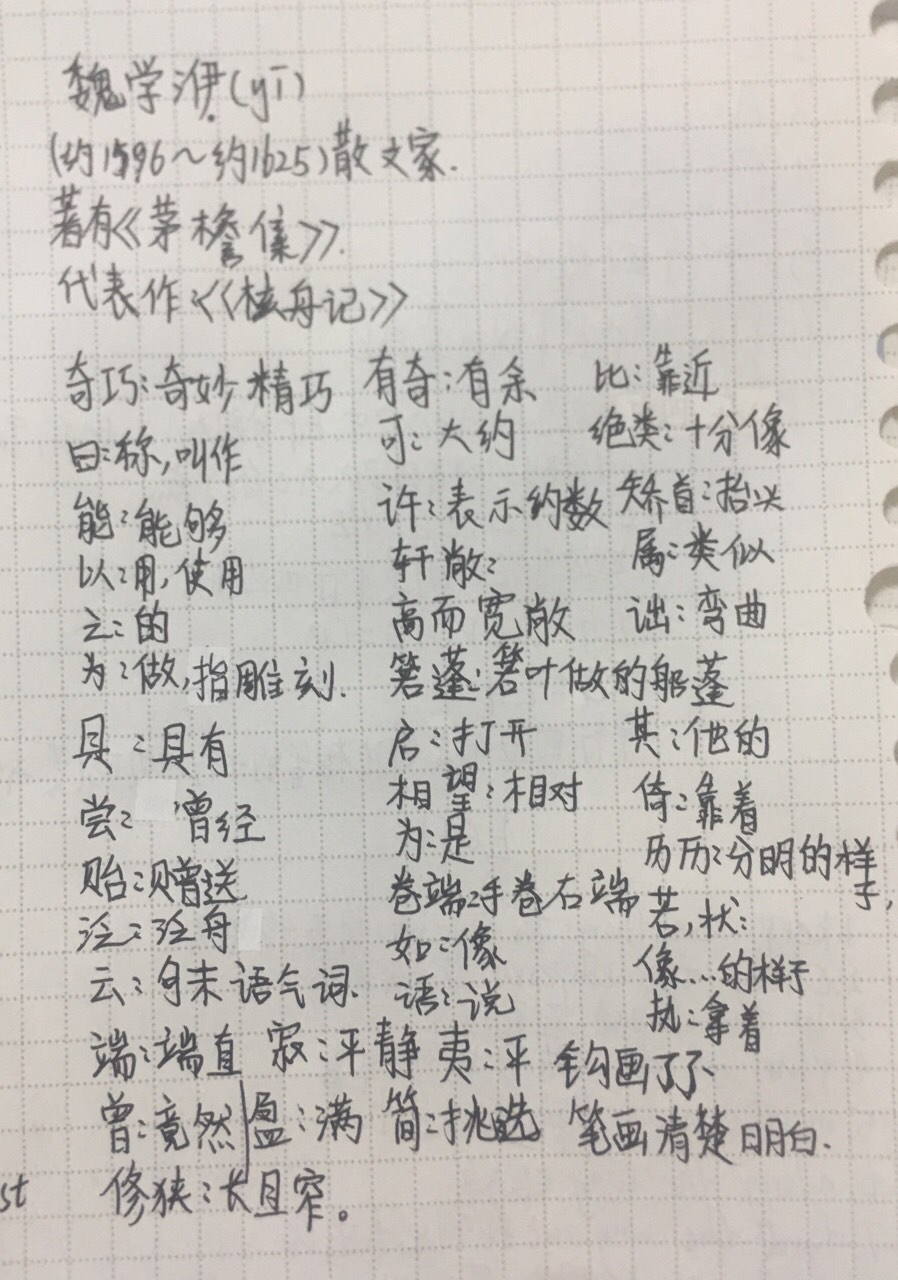 魏学洢(yī)
(约1596～约1625)散文家.
著有《茅檐集》.
代表作:《核舟记》
奇巧:奇妙精巧
曰:称,叫作
能:能够
以:用,使用
之:的
为:做,指雕刻.
具:具有
尝:曾经
贻:赠送
泛:泛舟
云:句末语气词.
有奇:有余
可:大约
许:表示约数
轩敞:
高而宽敞
箬蓬:箬叶做的船蓬
启:打开
相望:相对
为:是
卷端:手卷右端
如:像
语:说
比:靠近
绝类:十分像
矫首:抬头
属:类似
诎:弯曲
其:他的
倚:靠着
历历:分明的样
子,
若,状:
像…的样子
执:拿着
端:端直 寂:平静 夷:平 钩画了了、
曾:竟然 盈:满 简:挑选 笔画清楚明白.
st 修狭:长且窄。